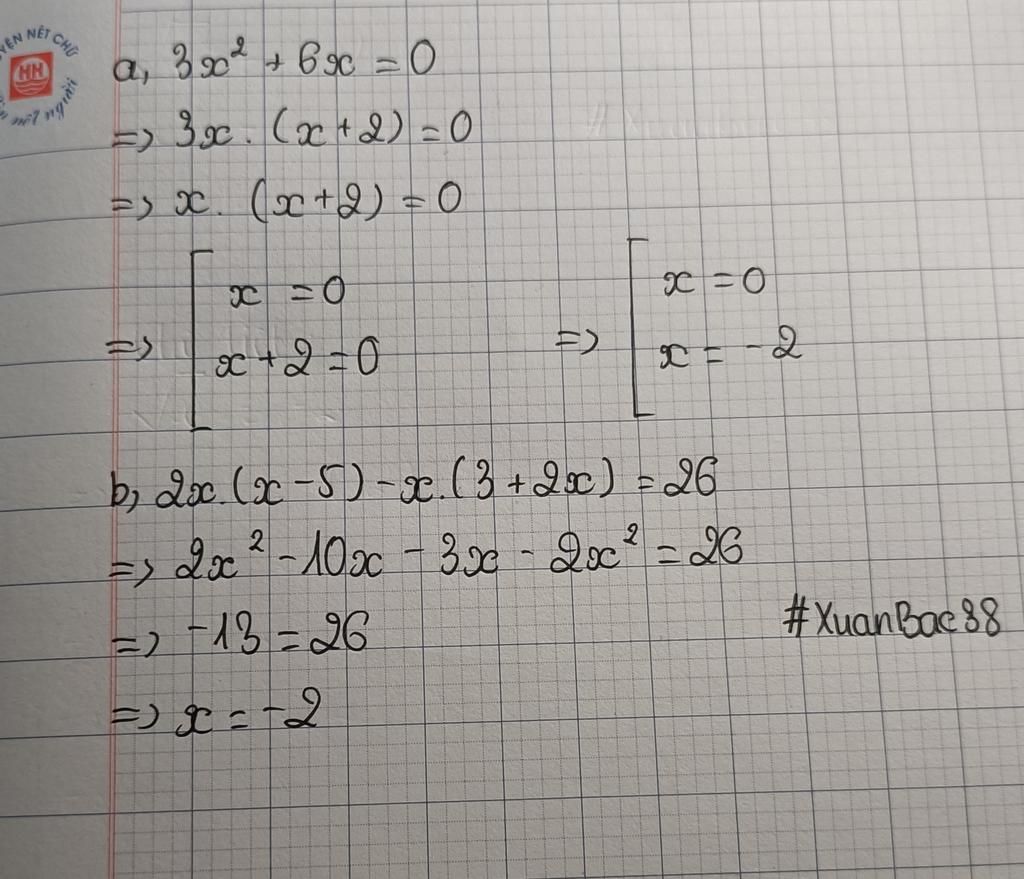 YỆN NÉT CHỮ
HH
a, 3x² + 6x = 0
=> 3x . (x + 2) = 0
=> x . (x + 2) = 0
=> [ x = 0 => [ x = 0
x + 2 = 0 x = -2
b, 2x.(x - 5) - x.(3 + 2x) = 26
=> 2x² - 10x - 3x - 2x² = 26
=> -13 = 26
#XuanBac88
=> x = -2